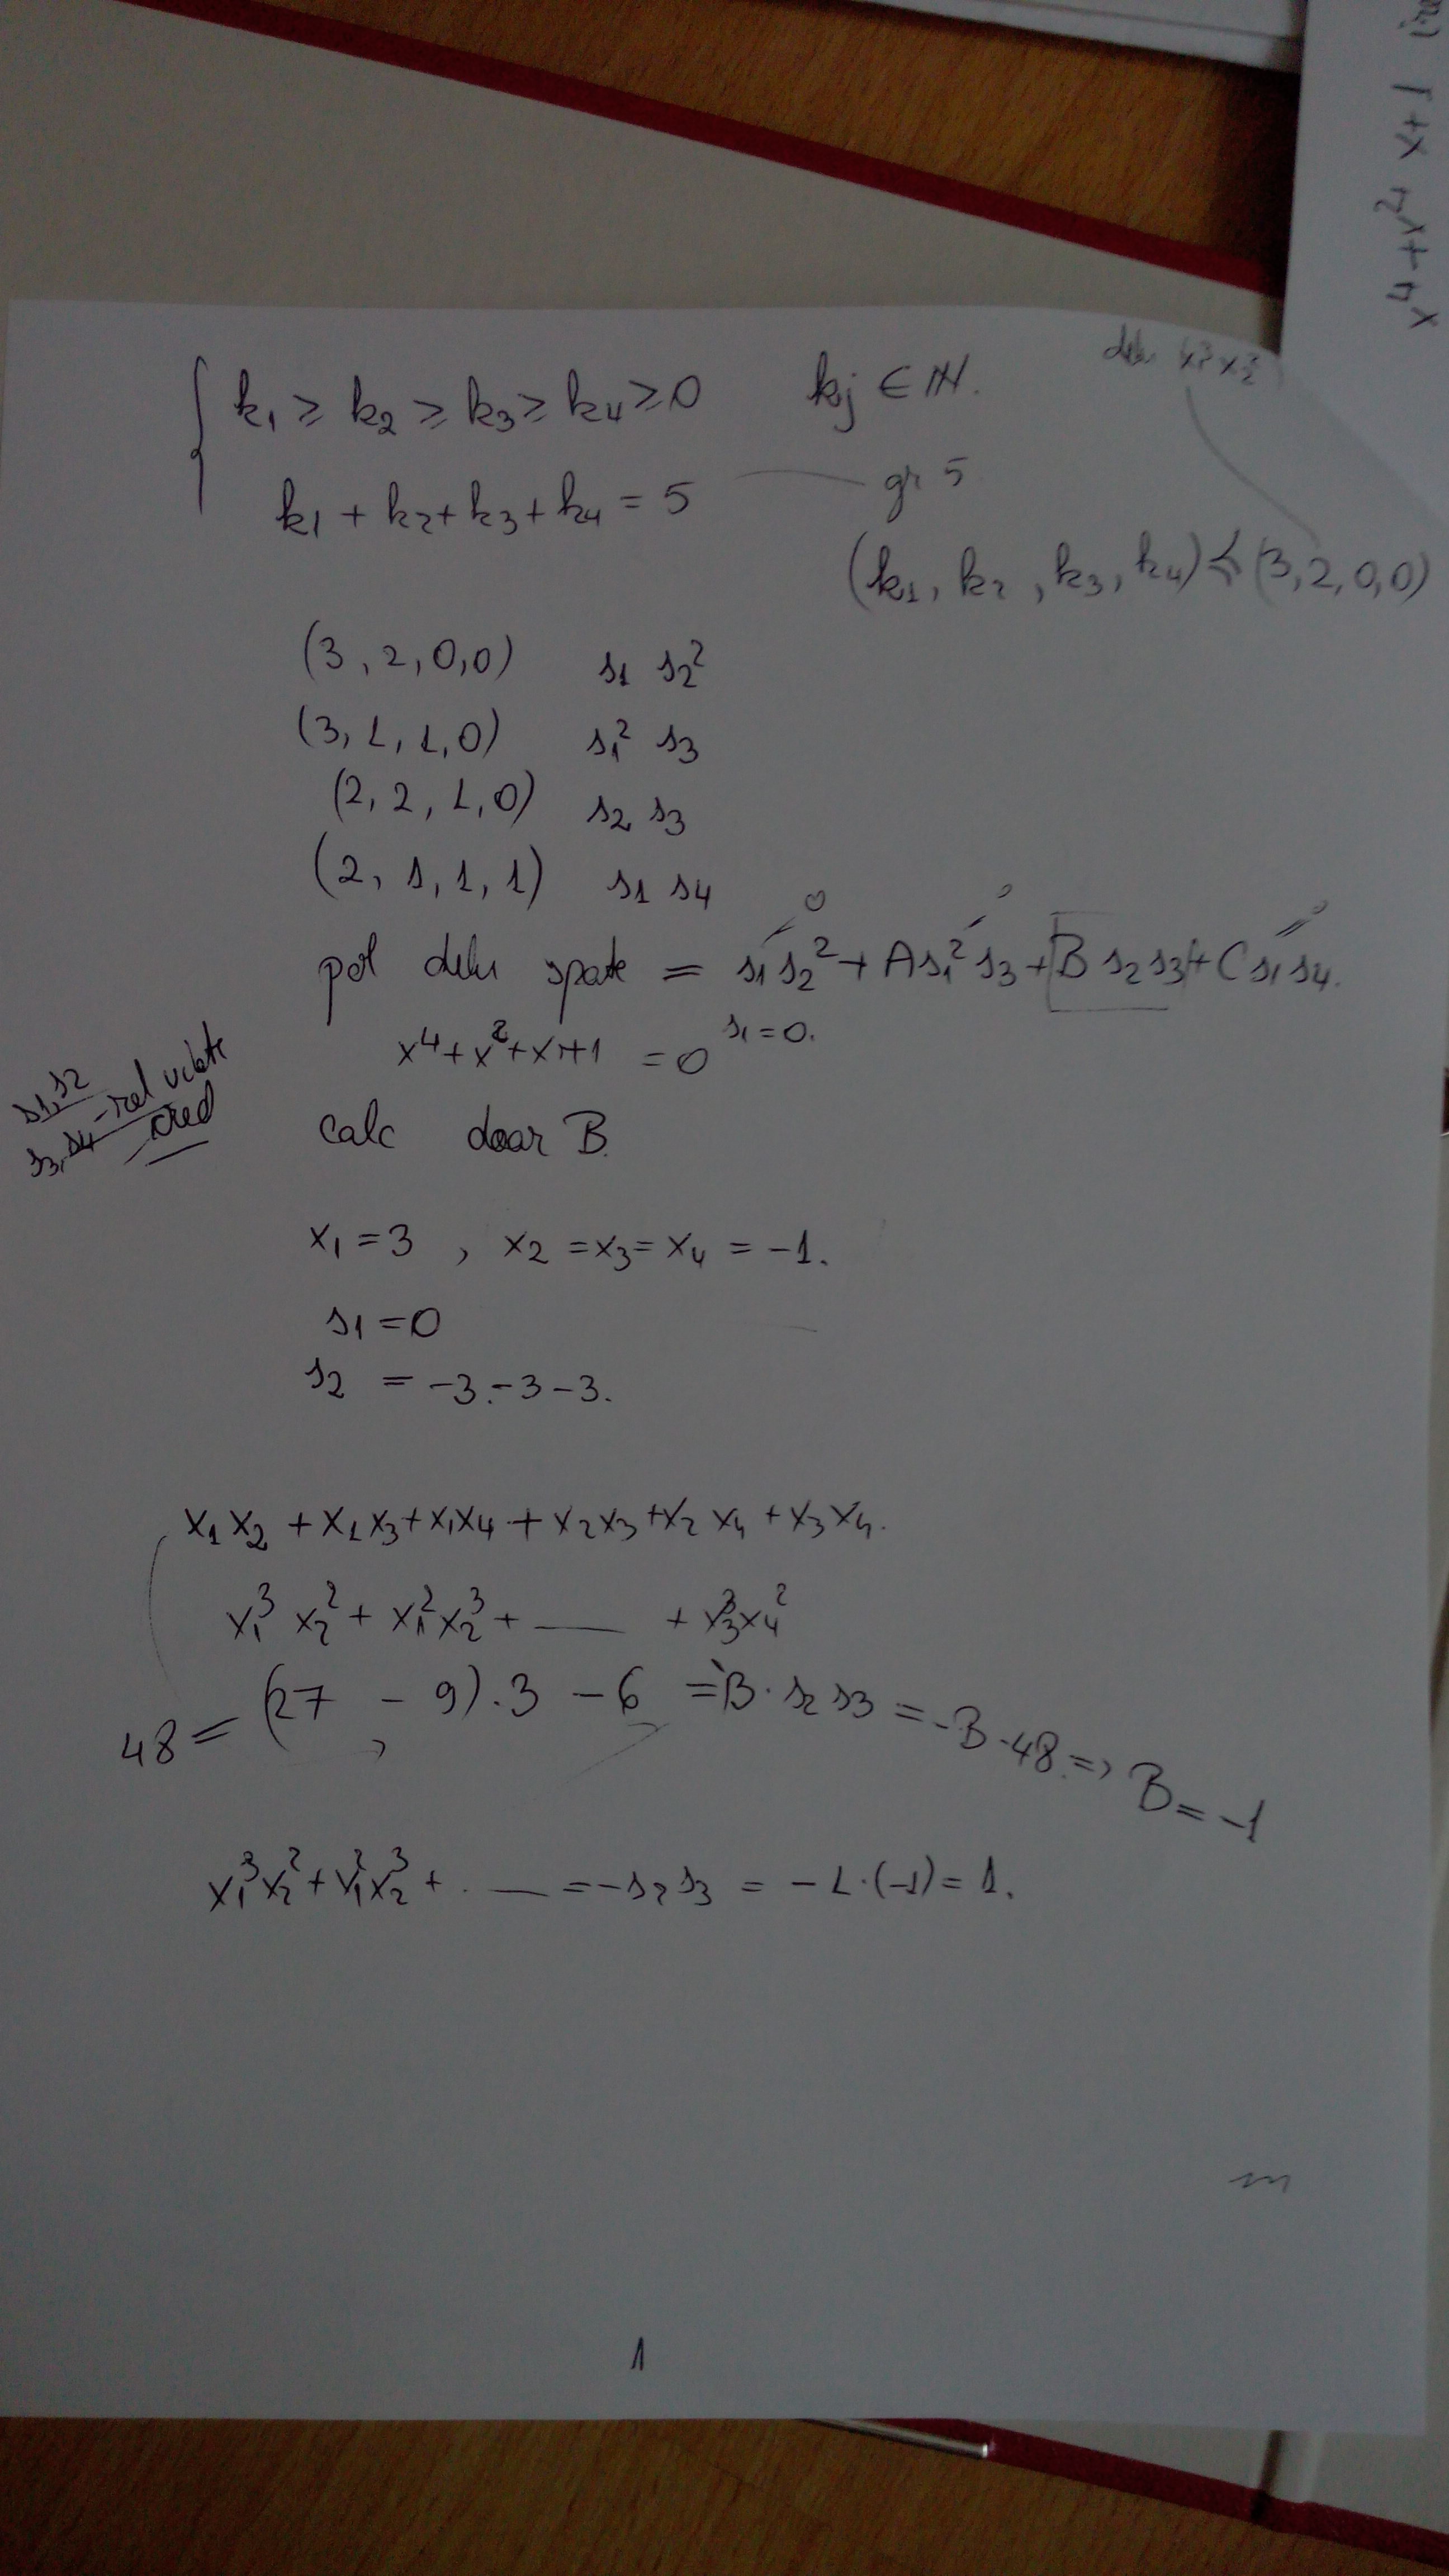 x⁴ + x² x + 1
de la x₁³ x₂²
k₁ ≥ k₂ ≥ k₃ ≥ k₄ ≥ 0 kj ∈ ℕ.
k₁ + k₂ + k₃ + k₄ = 5 gr 5
(k₁, k₂, k₃, k₄) ≼ (3, 2, 0, 0)
(3, 2, 0, 0) s₁ s₂²
(3, 1, 1, 0) s₁² s₃
(2, 2, 1, 0) s₂ s₃
(2, 1, 1, 1) s₁ s₄
0 0 0
pol delu spate = s₁ s₂² + A s₁² s₃ + B s₂ s₃ + C s₁ s₄.
x⁴ + x² + x + 1 = 0 s₁ = 0.
s₁, s₂
s₃, s₄ - rel viete
cred
calc doar B.
x₁ = 3 , x₂ = x₃ = x₄ = -1.
s₁ = 0
s₂ = -3 - 3 - 3.
x₁ x₂ + x₁ x₃ + x₁ x₄ + x₂ x₃ + x₂ x₄ + x₃ x₄.
x₁³ x₂² + x₁² x₂³ + — + x₃³ x₄²
48 = (27 - 9) · 3 - 6 = B · s₂ s₃ = -B · 48 => B = -1
x₁³ x₂² + x₁² x₂³ + . — = - s₂ s₃ = - 1 · (-1) = 1.
1